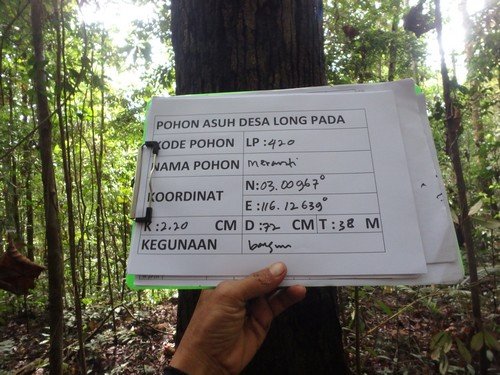 POHON ASUH DESA LONG PADA
KODE POHON LP : 420
NAMA POHON Meranti
KOORDINAT N : 03.00967°
E : 116.12639°
K : 2.20 CM D : 72 CM T : 38 M
KEGUNAAN